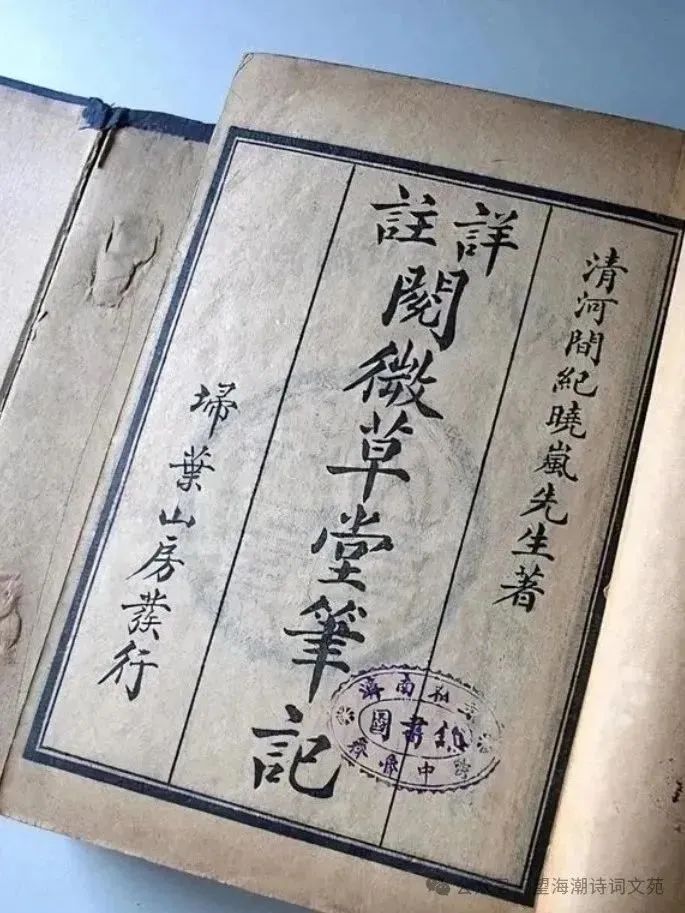 清河間紀曉嵐先生著
詳註
閱微草堂筆記
埽葉山房發行
濟南
圖書
望海潮诗词文苑